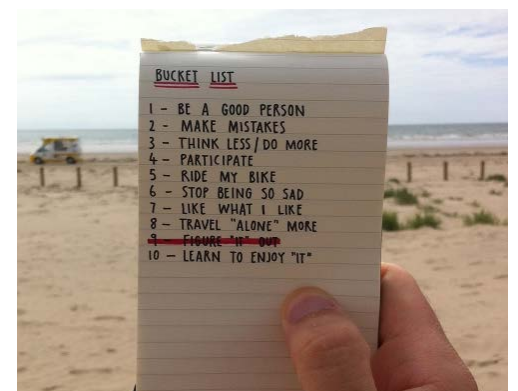 BUCKET LIST
1 - BE A GOOD PERSON
2 - MAKE MISTAKES
3 - THINK LESS/DO MORE
4 - PARTICIPATE
5 - RIDE MY BIKE
6 - STOP BEING SO SAD
7 - LIKE WHAT I LIKE
8 - TRAVEL "ALONE" MORE
9 - FIGURE "IT" OUT
10 - LEARN TO ENJOY "IT"